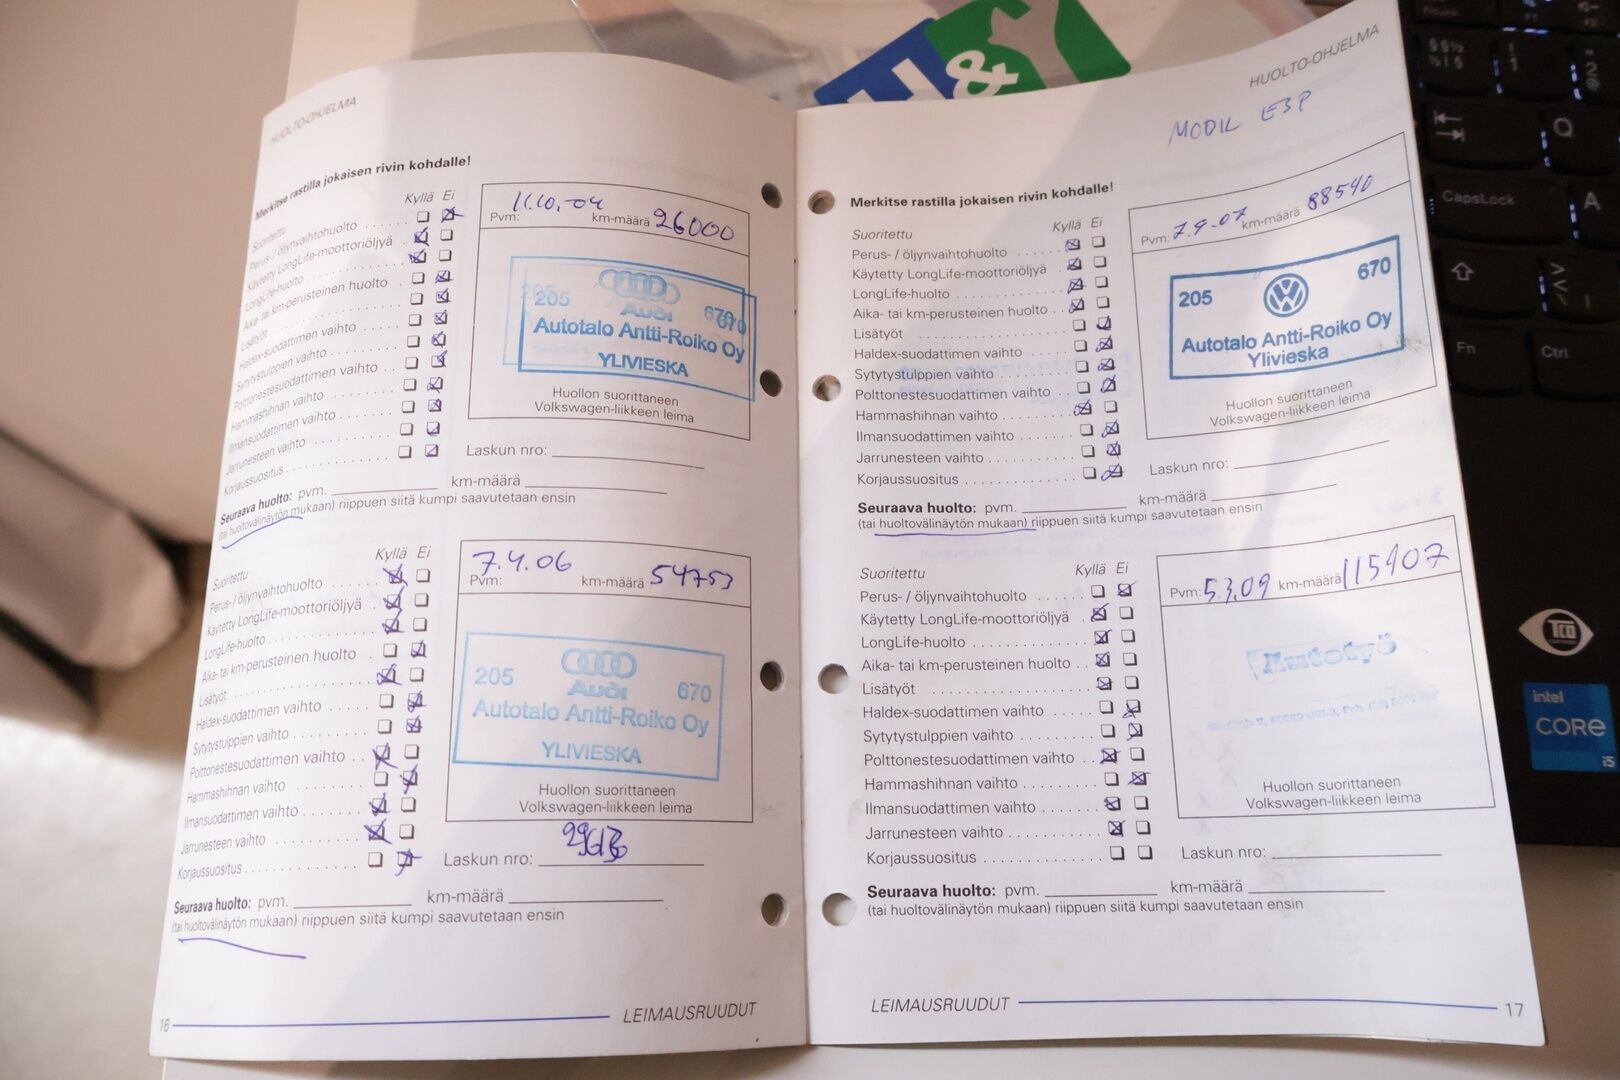 H&Y
HUOLTO-OHJELMA
Merkitse rastilla jokaisen rivin kohdalle!
Kyllä Ei
Suoritettu
Perus- / öljynvaihtohuolto
Käytetty LongLife-moottoriöljyä
LongLife-huolto
Aika- tai km-perusteinen huolto
Lisätyöt
Haldex-suodattimen vaihto
Sytytystulppien vaihto
Polttonestesuodattimen vaihto
Hammashihnan vaihto
Ilmansuodattimen vaihto
Jarrunesteen vaihto
Korjaussuositus
11.10.-04 26000
Pvm: km-määrä
205 Audi 670
Autotalo Antti-Roiko Oy
YLIVIESKA
Huollon suorittaneen
Volkswagen-liikkeen leima
Laskun nro:
Seuraava huolto: pvm. km-määrä
(tai huoltovälinäytön mukaan) riippuen siitä kumpi saavutetaan ensin
Kyllä Ei
Suoritettu
Perus- / öljynvaihtohuolto
Käytetty LongLife-moottoriöljyä
LongLife-huolto
Aika- tai km-perusteinen huolto
Lisätyöt
Haldex-suodattimen vaihto
Sytytystulppien vaihto
Polttonestesuodattimen vaihto
Hammashihnan vaihto
Ilmansuodattimen vaihto
Jarrunesteen vaihto
Korjaussuositus
7.4.06 54753
Pvm: km-määrä
205 Audi 670
Autotalo Antti-Roiko Oy
YLIVIESKA
Huollon suorittaneen
Volkswagen-liikkeen leima
Laskun nro:
Seuraava huolto: pvm. km-määrä
(tai huoltovälinäytön mukaan) riippuen siitä kumpi saavutetaan ensin
16 LEIMAUSRUUDUT
HUOLTO-OHJELMA
MODIL ESP
Merkitse rastilla jokaisen rivin kohdalle!
Suoritettu Kyllä Ei
Perus- / öljynvaihtohuolto
Käytetty LongLife-moottoriöljyä
LongLife-huolto
Aika- tai km-perusteinen huolto
Lisätyöt
Haldex-suodattimen vaihto
Sytytystulppien vaihto
Polttonestesuodattimen vaihto
Hammashihnan vaihto
Ilmansuodattimen vaihto
Jarrunesteen vaihto
Korjaussuositus
Pvm: 7.9-07 km-määrä 88540
205 670
Autotalo Antti-Roiko Oy
Ylivieska
Huollon suorittaneen
Volkswagen-liikkeen leima
Laskun nro:
Seuraava huolto: pvm. km-määrä
(tai huoltovälinäytön mukaan) riippuen siitä kumpi saavutetaan ensin
Suoritettu Kyllä Ei
Perus- / öljynvaihtohuolto
Käytetty LongLife-moottoriöljyä
LongLife-huolto
Aika- tai km-perusteinen huolto
Lisätyöt
Haldex-suodattimen vaihto
Sytytystulppien vaihto
Polttonestesuodattimen vaihto
Hammashihnan vaihto
Ilmansuodattimen vaihto
Jarrunesteen vaihto
Korjaussuositus
Pvm: 5.3.09 km-määrä 115407
Huollon suorittaneen
Volkswagen-liikkeen leima
Laskun nro:
Seuraava huolto: pvm. km-määrä
(tai huoltovälinäytön mukaan) riippuen siitä kumpi saavutetaan ensin
LEIMAUSRUUDUT 17
Q
CapsLock
A
Fn
Ctrl
TCO
intel
CORE
i5